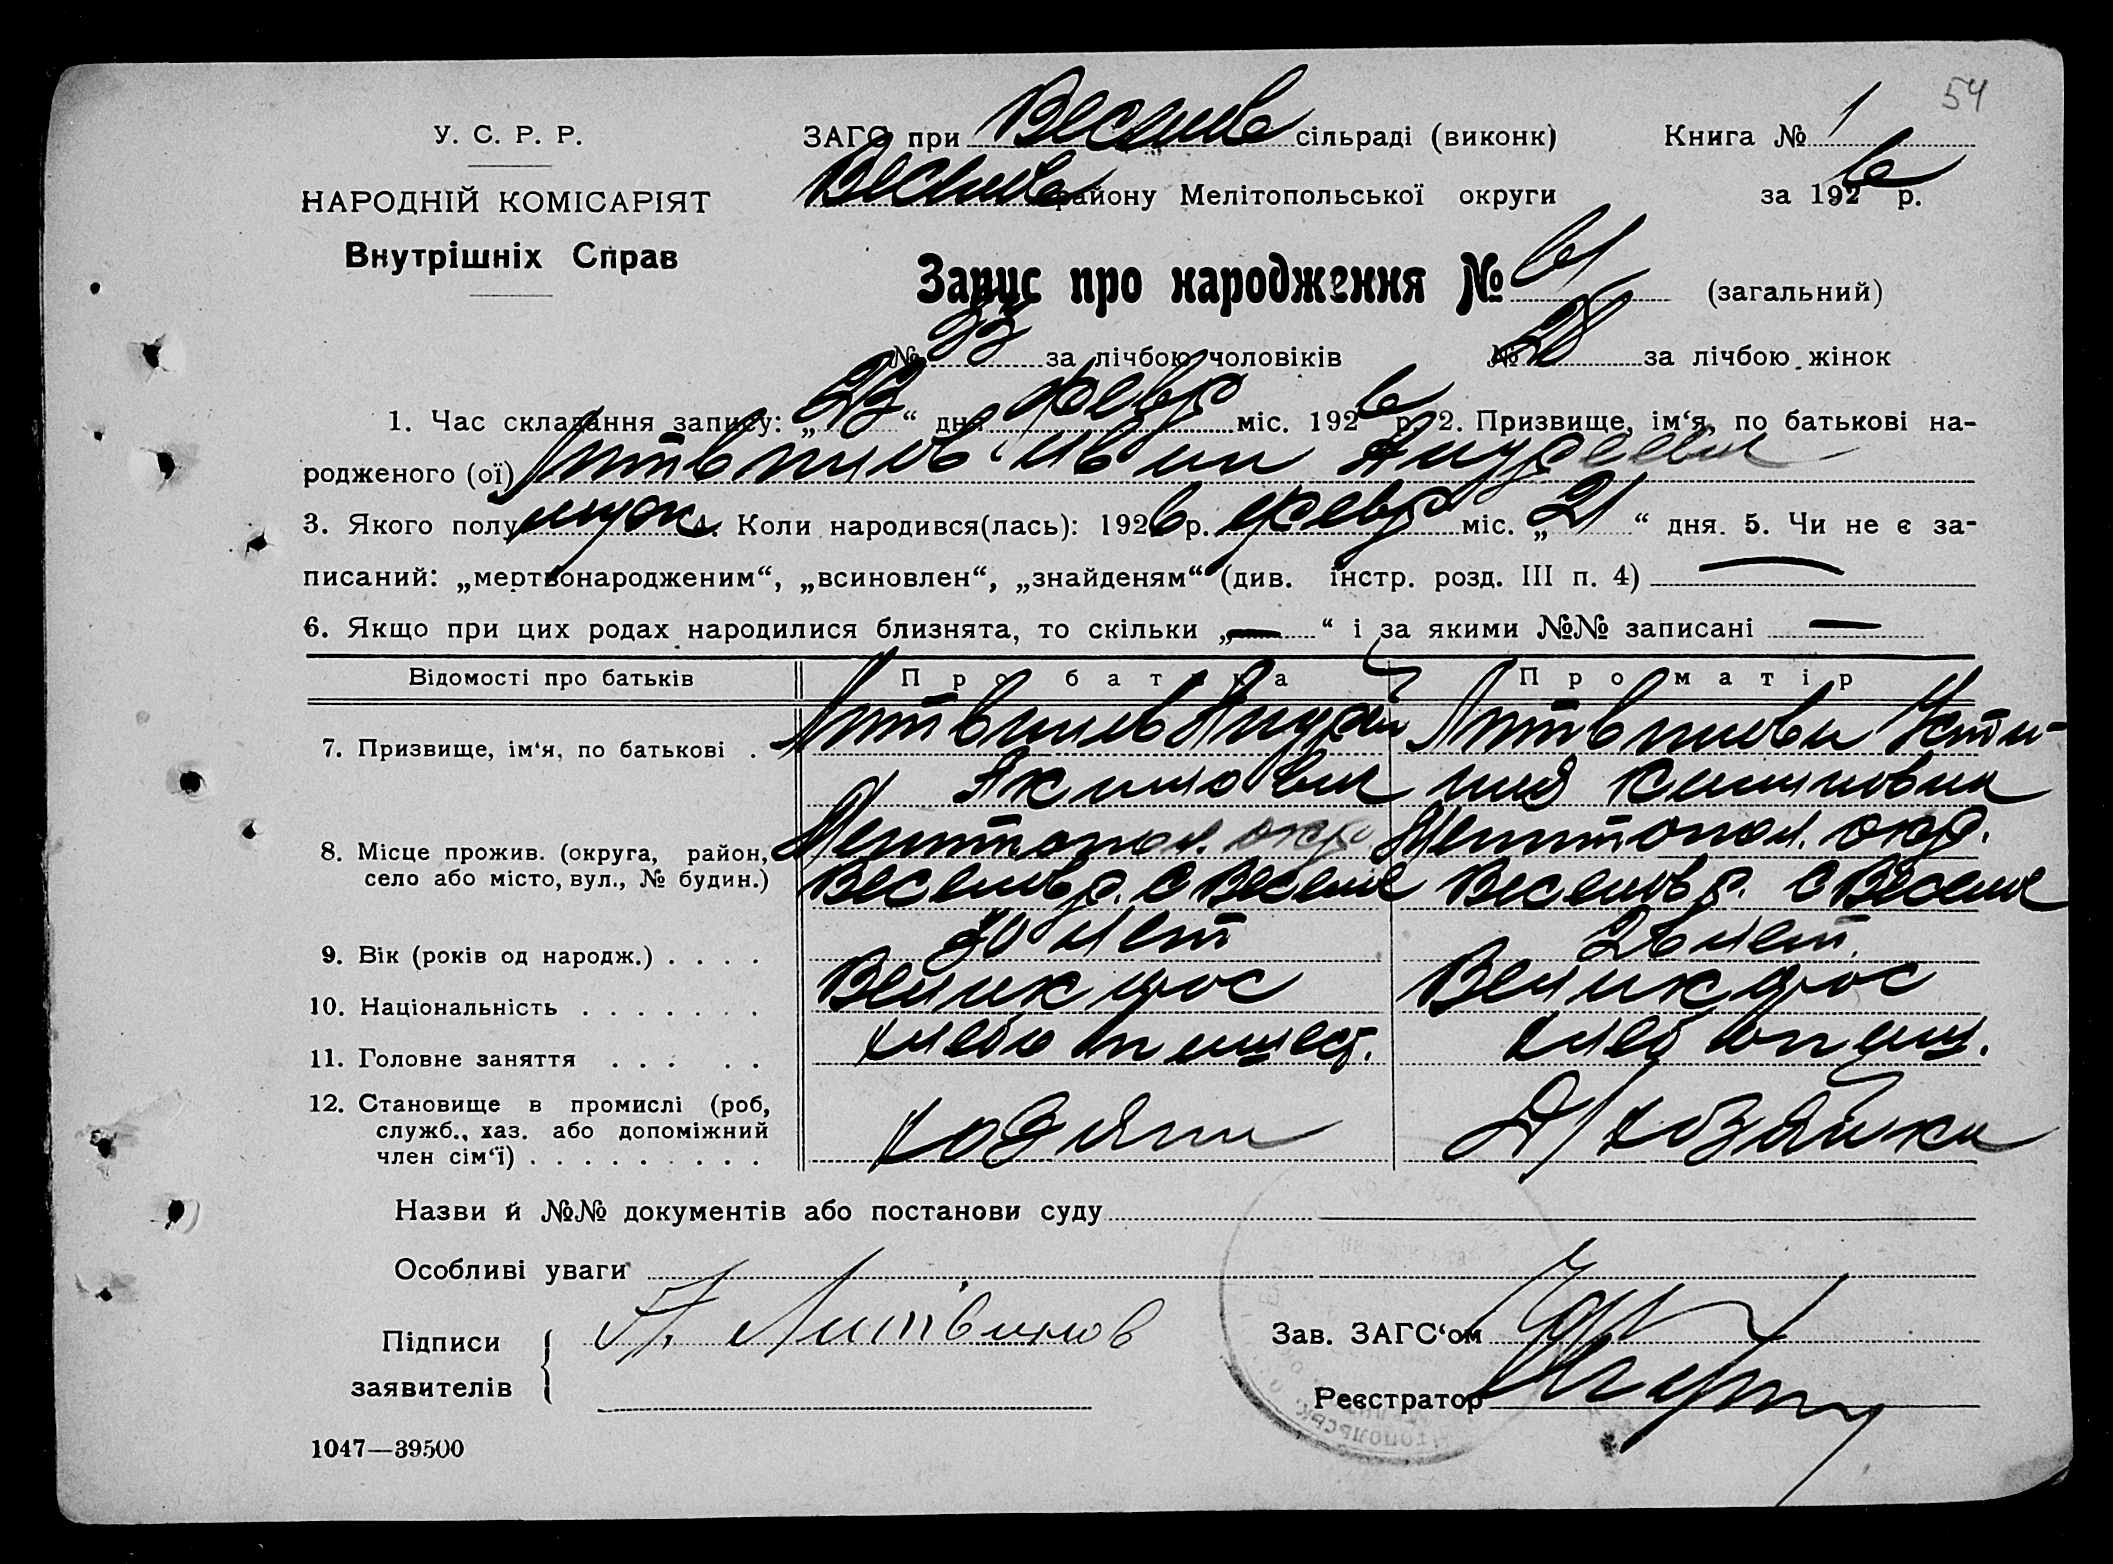 54
У. С. Р. Р.
ЗАГС при Веселов сільраді (виконк)
Книга № 1
Веселов району Мелітопольської округи
за 1926 р.
НАРОДНІЙ КОМІСАРІЯТ
Внутрішніх Справ
Запис про народження № 61 (загальний)
№ 33 за лічбою чоловіків № 28 за лічбою жінок
1. Час складання запису: „23“ дня февр міс. 1926 р. 2. Призвище, ім‘я, по батькові на-
родженого (ої) Литвинов Иван Андреевич
3. Якого полу муж 4. Коли народився(лась): 1926 р. февр міс. „21“ дня. 5. Чи не є за-
писаний: „мертвонародженим“, „всиновлен“, „знайденям“ (див. інстр. розд. III п. 4) —
6. Якщо при цих родах народилися близнята, то скільки „—“ і за якими №№ записані —
Відомості про батьків Про батька Про матір
7. Призвище, ім‘я, по батькові . Литвинов Андрей Литвинова Усти-
Акимович ния
8. Місце прожив. (округа, район, Мелитопол. окр. Мелитопол. окр.
село або місто, вул., № будин.) Веселов р. с Веселое Веселов р. с Веселое
9. Вік (років од народж.) . . . . 30 лет 26 лет.
10. Національність . . . . . . . Великорос Великорос
11. Головне заняття . . . . . хлебопашест. хлебопаш.
12. Становище в промислі (роб,
служб., хаз. або допоміжний хозяин Д/хозяйка
член сім‘ї) . . . . . . . . .
Назви й №№ документів або постанови суду
Особливі уваги
Підписи А. Литвинов
заявителів
Зав. ЗАГС‘ом
Реєстратор
1047—39500